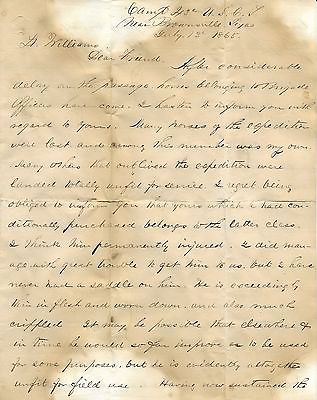 Camp 43rd U.S.C.T
Near Brownsville, Texas
July 13th 1865
Lt. Williams
Dear Friend. After considerable
delay on the passage, horses belonging to Brigade
Officers have come. I hasten to inform you with
regard to yours. Many horses of the expedition
were lost and among this number was my own.
Many others that outlived the expedition were
landed totally unfit for service. I regret being
obliged to inform you that yours which I had con-
ditionally purchased belongs to the latter class.
I think him permanently injured. I did man-
age with great trouble to get him to us, but I have
never had a saddle on him. He is exceedingly
thin in flesh and worn down, and also much
crippled It may be possible that elsewhere &
in time he would so far improve as to be used
for some purposes, but he is evidently altogether
unfit for field use. Having now sustained the